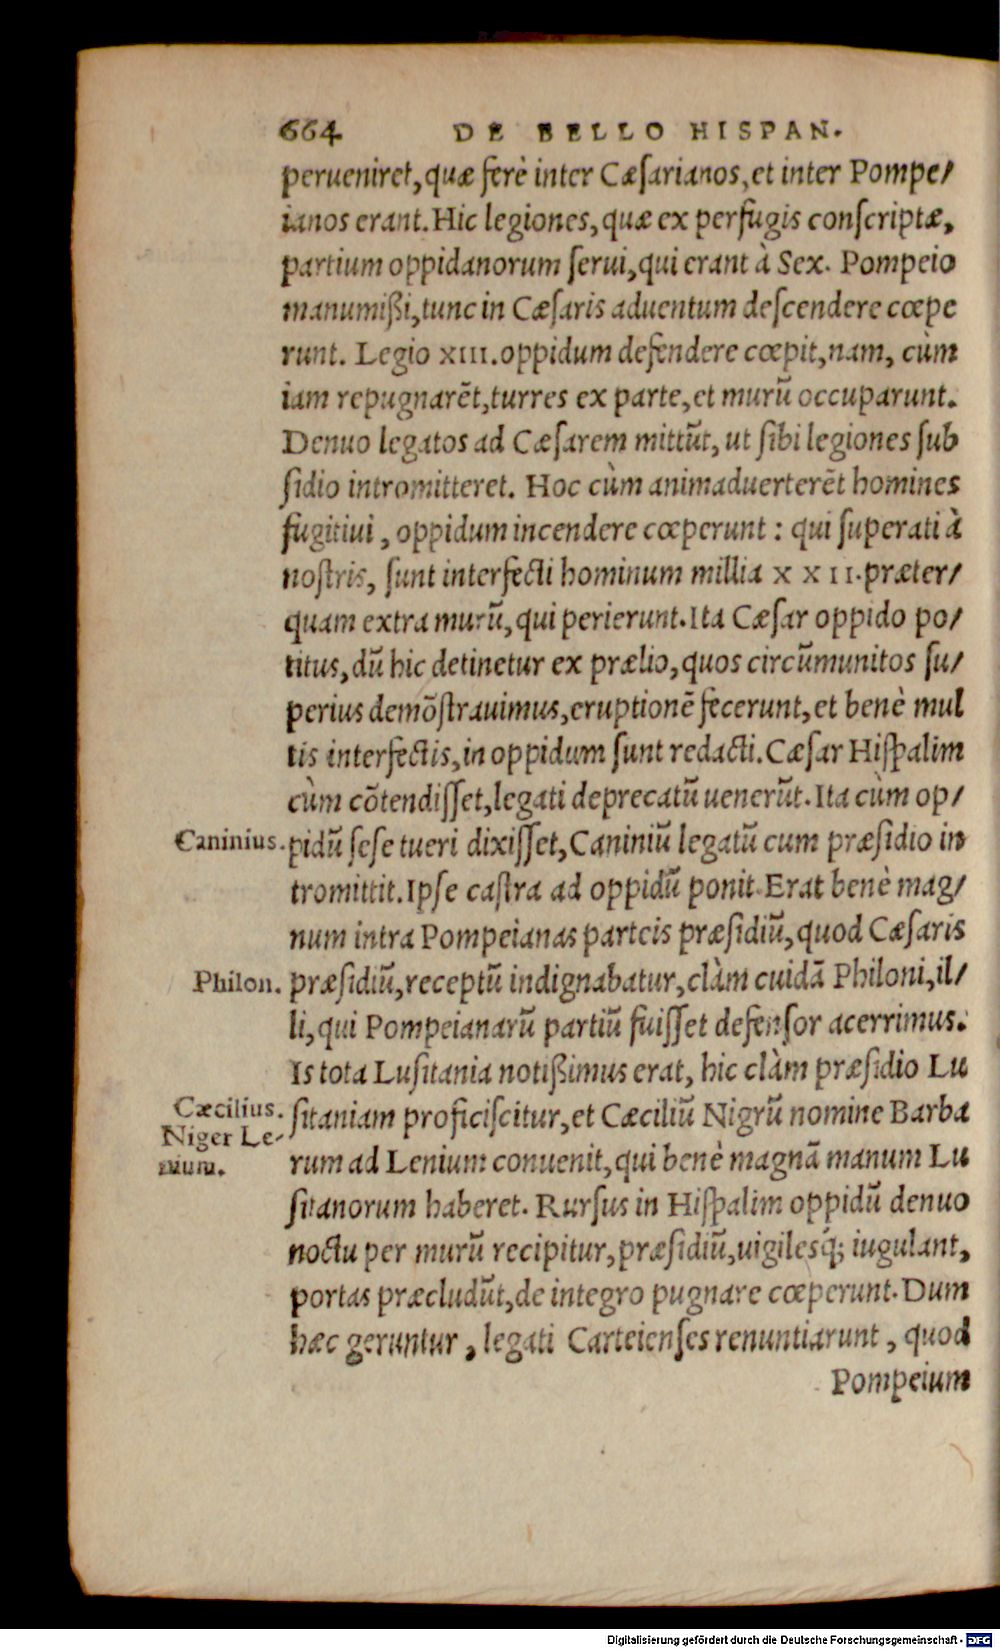 664 DE BELLO HISPAN.
perueniret, quæ ferè inter Cæsarianos, et inter Pompe/
ianos erant. Hic legiones, quæ ex perfugis conscriptæ,
partium oppidanorum serui, qui erant à Sex. Pompeio
manumißi, tunc in Cæsaris aduentum descendere cœpe
runt. Legio XIII. oppidum defendere cœpit, nam, cùm
iam repugnarẽt, turres ex parte, et murũ occuparunt.
Denuo legatos ad Cæsarem mittũt, ut sibi legiones sub
sidio intromitteret. Hoc cùm animaduerterẽt homines
fugitiui, oppidum incendere cœperunt: qui superati à
nostris, sunt interfecti hominum millia XXII. præter/
quam extra murũ, qui perierunt. Ita Cæsar oppido po/
titus, dũ hic detinetur ex prælio, quos circũmunitos su/
perius demõstrauimus, eruptionẽ fecerunt, et benè mul
tis interfectis, in oppidum sunt redacti. Cæsar Hispalim
cùm cõtendisset, legati deprecatũ uenerũt. Ita cùm op/
Caninius. pidũ sese tueri dixisset, Caniniũ legatũ cum præsidio in
tromittit. Ipse castra ad oppidũ ponit. Erat benè mag/
num intra Pompeianas parteis præsidiũ, quod Cæsaris
Philon. præsidiũ, receptũ indignabatur, clàm cuidã Philoni, il/
li, qui Pompeianarũ partiũ fuisset defensor acerrimus.
Is tota Lusitania notißimus erat, hic clàm præsidio Lu
Cæcilius. sitaniam proficiscitur, et Cæciliũ Nigrũ nomine Barba
Niger Le-
nium. rum ad Lenium conuenit, qui benè magnã manum Lu
sitanorum haberet. Rursus in Hispalim oppidũ denuo
noctu per murũ recipitur, præsidiũ, uigilesq́; iugulant,
portas præcludũt, de integro pugnare cœperunt. Dum
hæc geruntur, legati Carteienses renuntiarunt, quod
Pompeium
Digitalisierung gefördert durch die Deutsche Forschungsgemeinschaft - DFG